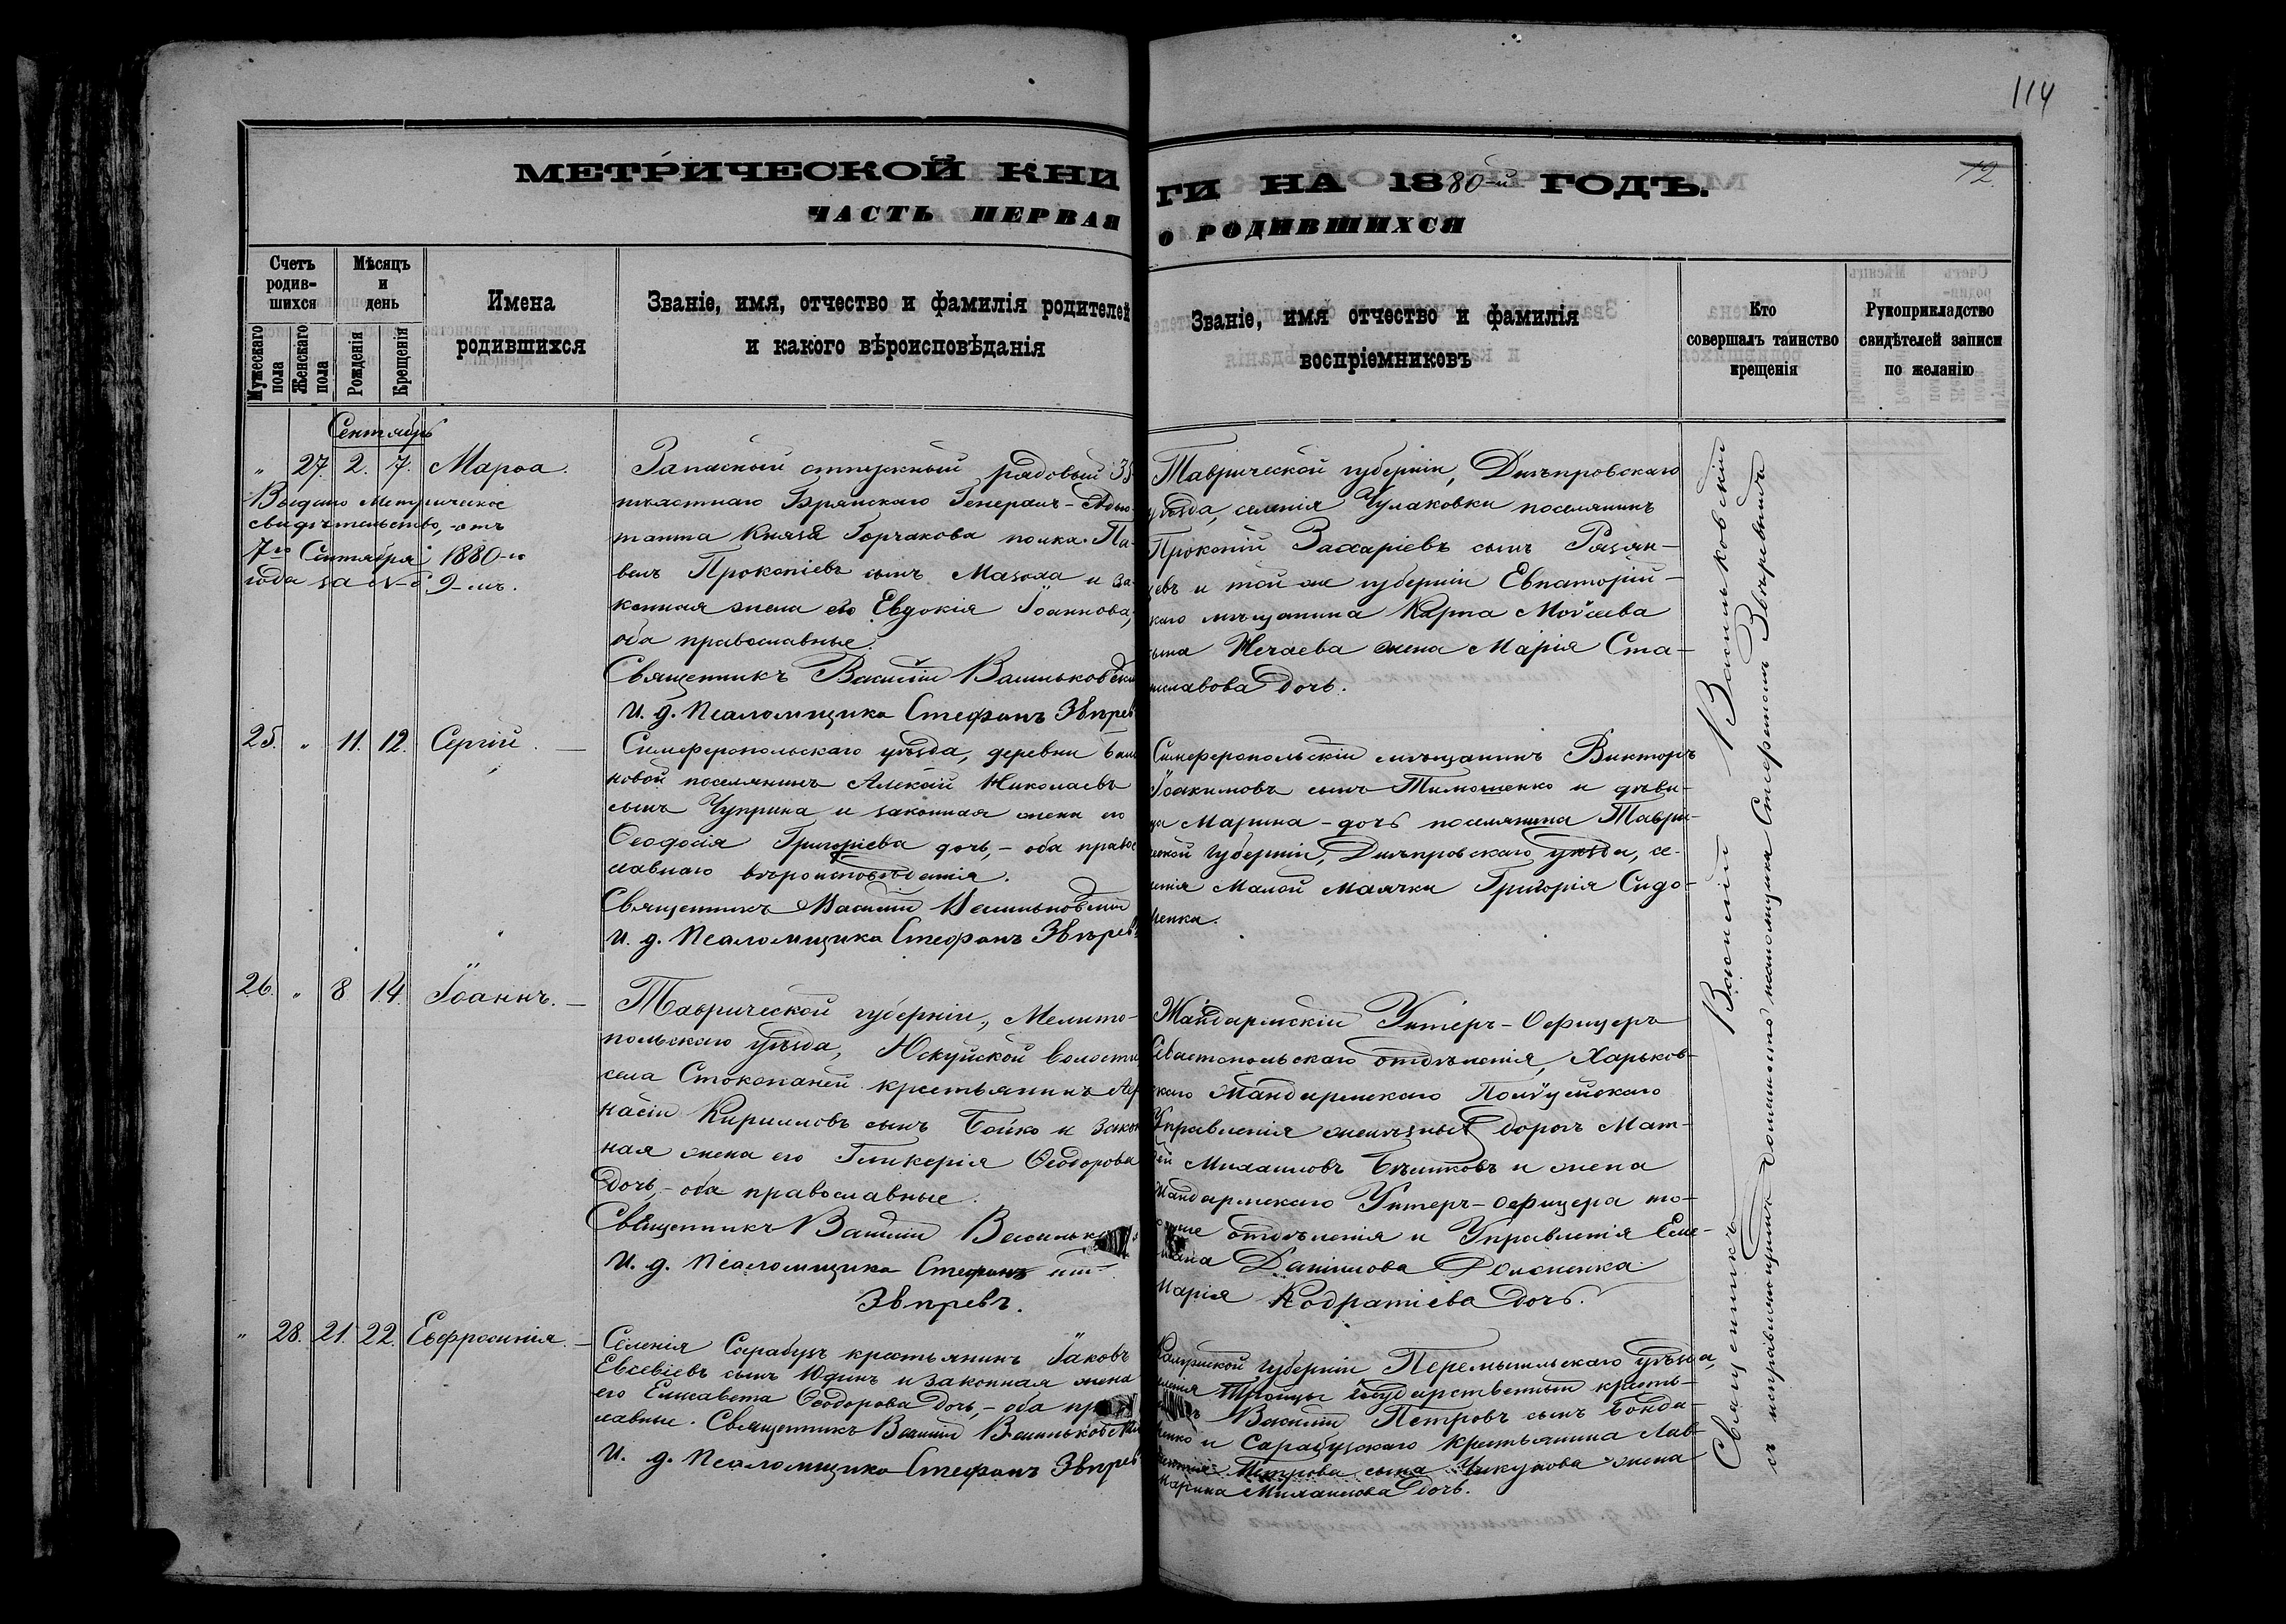 114
МЕТРИЧЕСКОЙ КНИ
ГИ НА 1880-й ГОДЪ.
12.
ЧАСТЬ ПЕРВАЯ
О РОДИВШИХСЯ
Счетъ родив-шихся
Мужескаго пола
Женскаго пола
Мѣсяцъ и день
Рожденія
Крещенія
Имена
родившихся
Званіе, имя, отчество и фамилія родителей
и какого вѣроисповѣданія
Званіе, имя отчество и фамилія
воспріемниковъ
Кто
совершалъ таинство
крещенія
Рукоприкладство
свидѣтелей записи
по желанію
Сентябрь
" 27. 2. 7. Марѳа.
Выдано Метрическое
свидѣтельство, отъ
7го Сентября 1880-го
года за №-ъ 9-мъ.
Запасный отпускный рядовый 35
пѣхотнаго Брянскаго Генералъ-Адъю-
танта Князя Горчакова полка Па-
велъ Прокопіевъ сынъ и за-
конная жена его Евдокія Іоаннова,
оба православные.
Священникъ Василій Васильковскій
И. д. Псаломщика Стефанъ Звѣрев
Таврической губерніи, Днѣпровскаго
уѣзда, селенія Чулаковки поселянинъ
Прокопій Захаріевъ сынъ Рязан-
цевъ и той же губерніи Евпаторій-
скаго мѣщанина Карпа Моѵсеева
сына Нечаева жена Марія Ста-
ниславова дочь.
25. " 11. 12. Сергій.
Симферопольскаго уѣзда, деревни
новой поселянинъ Алексій Николаевъ
сынъ Чуприна и законная жена его
Ѳеодосія Григоріева дочь, - оба правос
лавнаго вѣроисповѣданія.
Священникъ Василій Васильковскій
И. д. Псаломщика Стефанъ Звѣрев
Симферопольскій мѣщанинъ Викторъ
Іоакимовъ сынъ Тимошенко и дѣви-
ца Марина - дочь поселянина Таври-
ческой губерніи, Днѣпровскаго уѣзда, се-
ленія Малой Маячки Григорія Сидо-
ренка.
26. " 8 14. Іоаннъ.
Таврической губерніи, Мелито-
польскаго уѣзда, волости,
села Стокопаней крестьянинъ Аѳ
насій Кирилловъ сынъ Бойко и закон
ная жена его Гликерія Ѳеодорова
дочь, - оба православные.
Священникъ Василій Васильк
И. д. Псаломщика Стефанъ
Звѣревъ.
Жандармскій Унтеръ-Офицеръ
Севастопольскаго отдѣленія, Харьков-
скаго Жандармскаго Полицейскаго
Управленія желѣзныхъ дорогъ Мат-
ѳей Михаиловъ Бѣликовъ и жена
Жандармскаго Унтеръ-Офицера то-
го же отдѣленія и Управленія Еме-
ліана Даніилова
Марія Кодратіева дочь.
" 28. 21. 22. Евфросинія.
Селенія Сарабузъ крестьянинъ Іаковъ
Евсевіевъ сынъ Юдинъ и законная жена
его Елисавета Ѳеодорова дочь, - оба пр
лавные. Священникъ Василій Васильковскій
И. д. Псаломщика Стефанъ Звѣрев
Калужской губерніи Перемышльскаго уѣзда,
селенія Троицы Государственный кресть-
Василій Петровъ сынъ Бонда-
ренко и Сарабузскаго крестьянина Лав-
рентія Петрова сына Чикунова жена
Марина Михаилова дочь.
Священникъ Василій Васильковскій
съ исправляющимъ должность псаломщика Стефаномъ Звѣревымъ